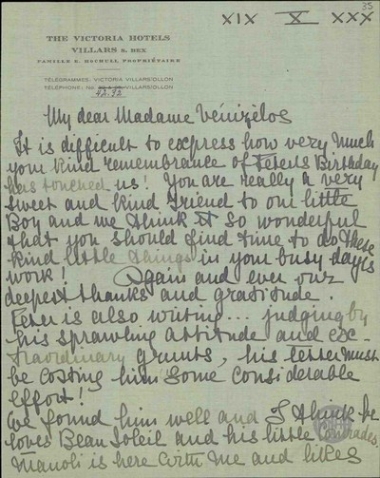 35
XIX X XXX
THE VICTORIA HOTELS
VILLARS S. BEX
FAMILLE E. HOCHULI, PROPRIÉTAIRE
TÉLÉGRAMMES: VICTORIA VILLARS/OLLON
TÉLÉPHONE: No. VILLARS/OLLON
42.92
My dear Madame Vénizélos
It is difficult to express how very much
your kind remembrance of Peter's Birthday
has touched us! You are really a very
sweet and kind friend to our little
Boy and we think it so wonderful
that you should find time to do these
kind little things in your busy day's
work! Again and ever our
deepest thanks and gratitude.
Peter is also writing... judging by
his sprawling attitude and ex-
traordinary grunts, his letter must
be costing him some considerable
effort!
We found him well and I think he
loves Beau Soleil and his little comrades.
Manoli is here with me and likes